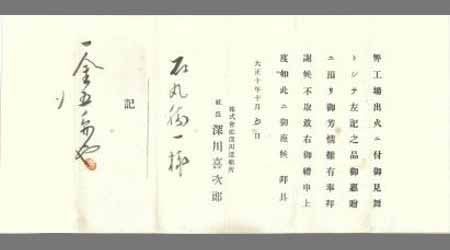 弊工場出火ニ付御見舞
トシテ左記之品御惠贈
ニ預リ御芳情難有奉拜
謝候不取敢右御禮申上
度如此ニ御座候 拜具
大正十年十月 日
株式會社深川造船所
社長 深川喜次郎
石丸 一様
記
一金五